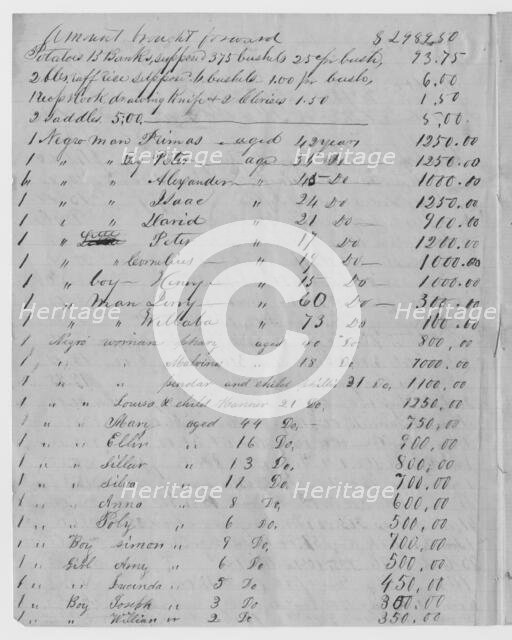 Amount brought forward $2989.50
Potatoes 15 Banks, suppose 375 bushels 25 c pr bush, 93.75
2 bls, ruff rice suppose 6 bushels 1.00 pr bush, 6.00
1 Reap Hook drawing Knife & 2 1.50 1.50
2 Saddles 5.00 5.00
1 Negro man Primas aged 42 years 1250.00
1 " " Peter age Do 1250.00
1 " " Alexander " 45 Do 1000.00
1 " " Isaac " 24 Do 1250.00
1 " " David " 21 Do 900.00
1 " Little Peter " 17 Do 1200.00
1 " " Cornelius 19 Do 1000.00
1 " boy Henry " 15 Do 1000.00
1 " Man Perry " 60 Do 300.00
1 " " " 73 Do 100.00
1 Negro woman aged 40 Do 800.00
1 " " Malvina " 18 Do 1000.00
1 " " and child 31 Do, 1100.00
1 " " Louisa & child 21 Do, 1250.00
1 " " Mary aged 44 Do, 750.00
1 " " Ellin " 16 Do, 900.00
1 " " Sillar " 13 Do, 800.00
1 " " Silva " 11 Do, 700.00
1 " " Anna " 8 Do, 600.00
1 " " Poly " 6 Do, 500.00
1 " Boy Simon " 9 Do, 700.00
1 " Girl Amy " 6 Do, 500.00
1 " " Lucinda " 5 Do 450.00
1 " Boy Joseph " 3 Do 350.00
1 " " William " 2 Do 350.00
Heritage Images
Heritage Images
Heritage Images
Heritage Images
Heritage Images
Heritage Images